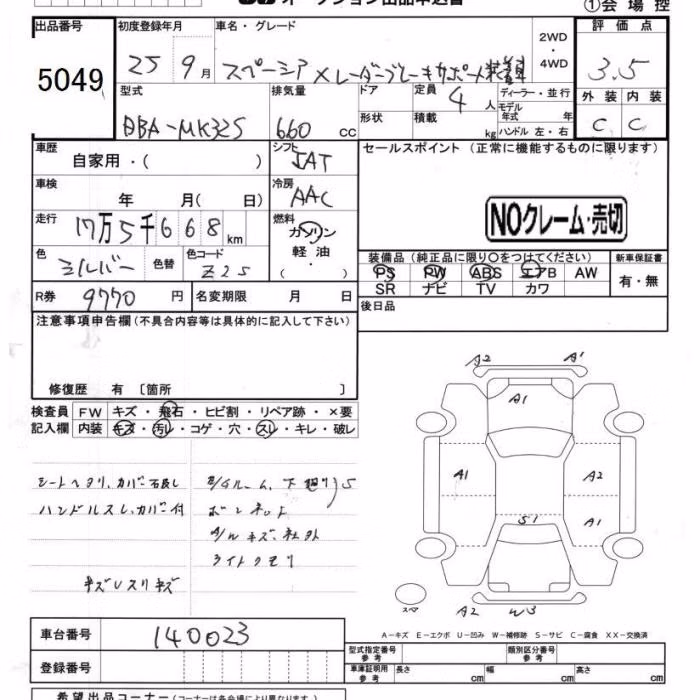 オークション出品申込書
①会場控
出品番号 初度登録年月 車名・グレード 2WD・4WD 評価点
5049 25 9月 スペーシア Xレーダーブレーキサポート装着 3.5
型式 排気量 ドア 定員 4人 ディーラー・並行 外装 内装
DBA-MK32S 660cc 形状 積載 kg モデル年式 年 ハンドル 左・右 C C
車歴 自家用・( ) シフト IAT セールスポイント (正常に機能するものに限ります)
車検 年 月( 日) 冷房 AAC
NOクレーム・売切
走行 17万5千668km 燃料 ガソリン・軽油・
装備品 (純正品に限り○をつけてください) 新車保証書
色 シルバー 色替 色コード Z2S
PS PW ABS エアB AW 有・無
SR ナビ TV カワ
R券 9770円 名変期限 月 日 後日品
注意事項申告欄 (不具合内容等は具体的に記入して下さい)
修復歴 有 [箇所 ]
検査員 FW キズ・飛石・ヒビ割・リペア跡・×要
記入欄 内装 キズ・汚レ・コゲ・穴・スレ・キレ・破レ
シートヘタリ、カバー
ハンドルスレ、カバー付
ボンネット
A/Wキズ、社外
ライトクモリ
キズ レ スリキズ
A2 A1
A1
A1 A2
S1 A1
スペア
A2 W3
A-キズ E-エクボ U-凹み W-補修跡 S-サビ C-腐食 XX-交換済
車台番号 140023
型式指定番号 参考 類別区分番号 参考
登録番号
車庫証明用 参考 長さ cm 幅 cm 高さ cm
希望出品コーナー (コーナーは各会場により異なります)